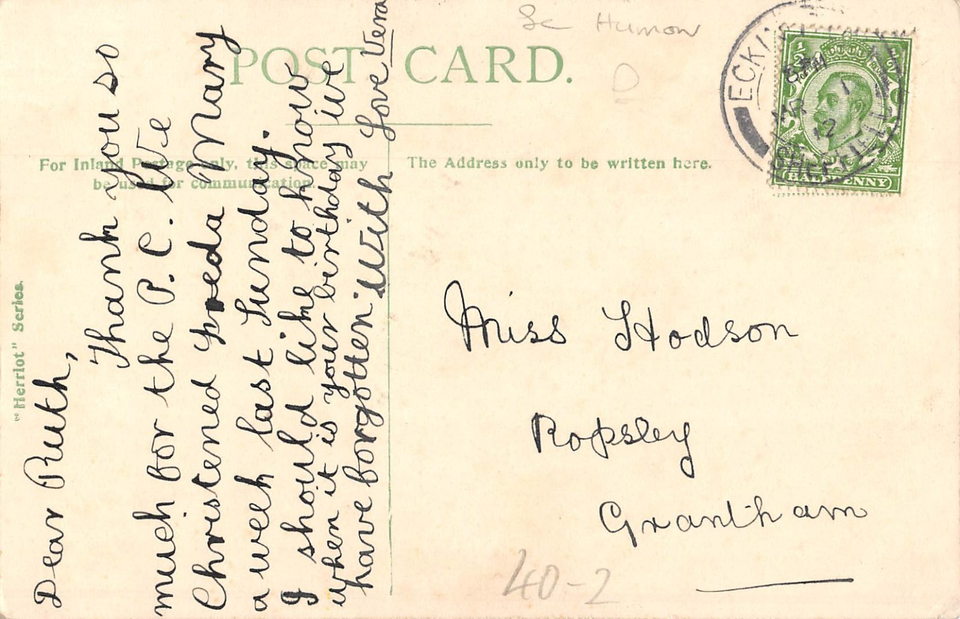 POST CARD.
For Inland Postage only, this space may
be used for communication.
The Address only to be written here.
"Herriot" Series.
Dear Ruth,
Thank you so
much for the P.C. We
Christened Freda Mary
a week last Sunday.
I should like to know
when it is your birthday we
have forgotten. With Love Vera
Miss Hodson
Ropsley
Grantham
40-2
HALFPENNY
12